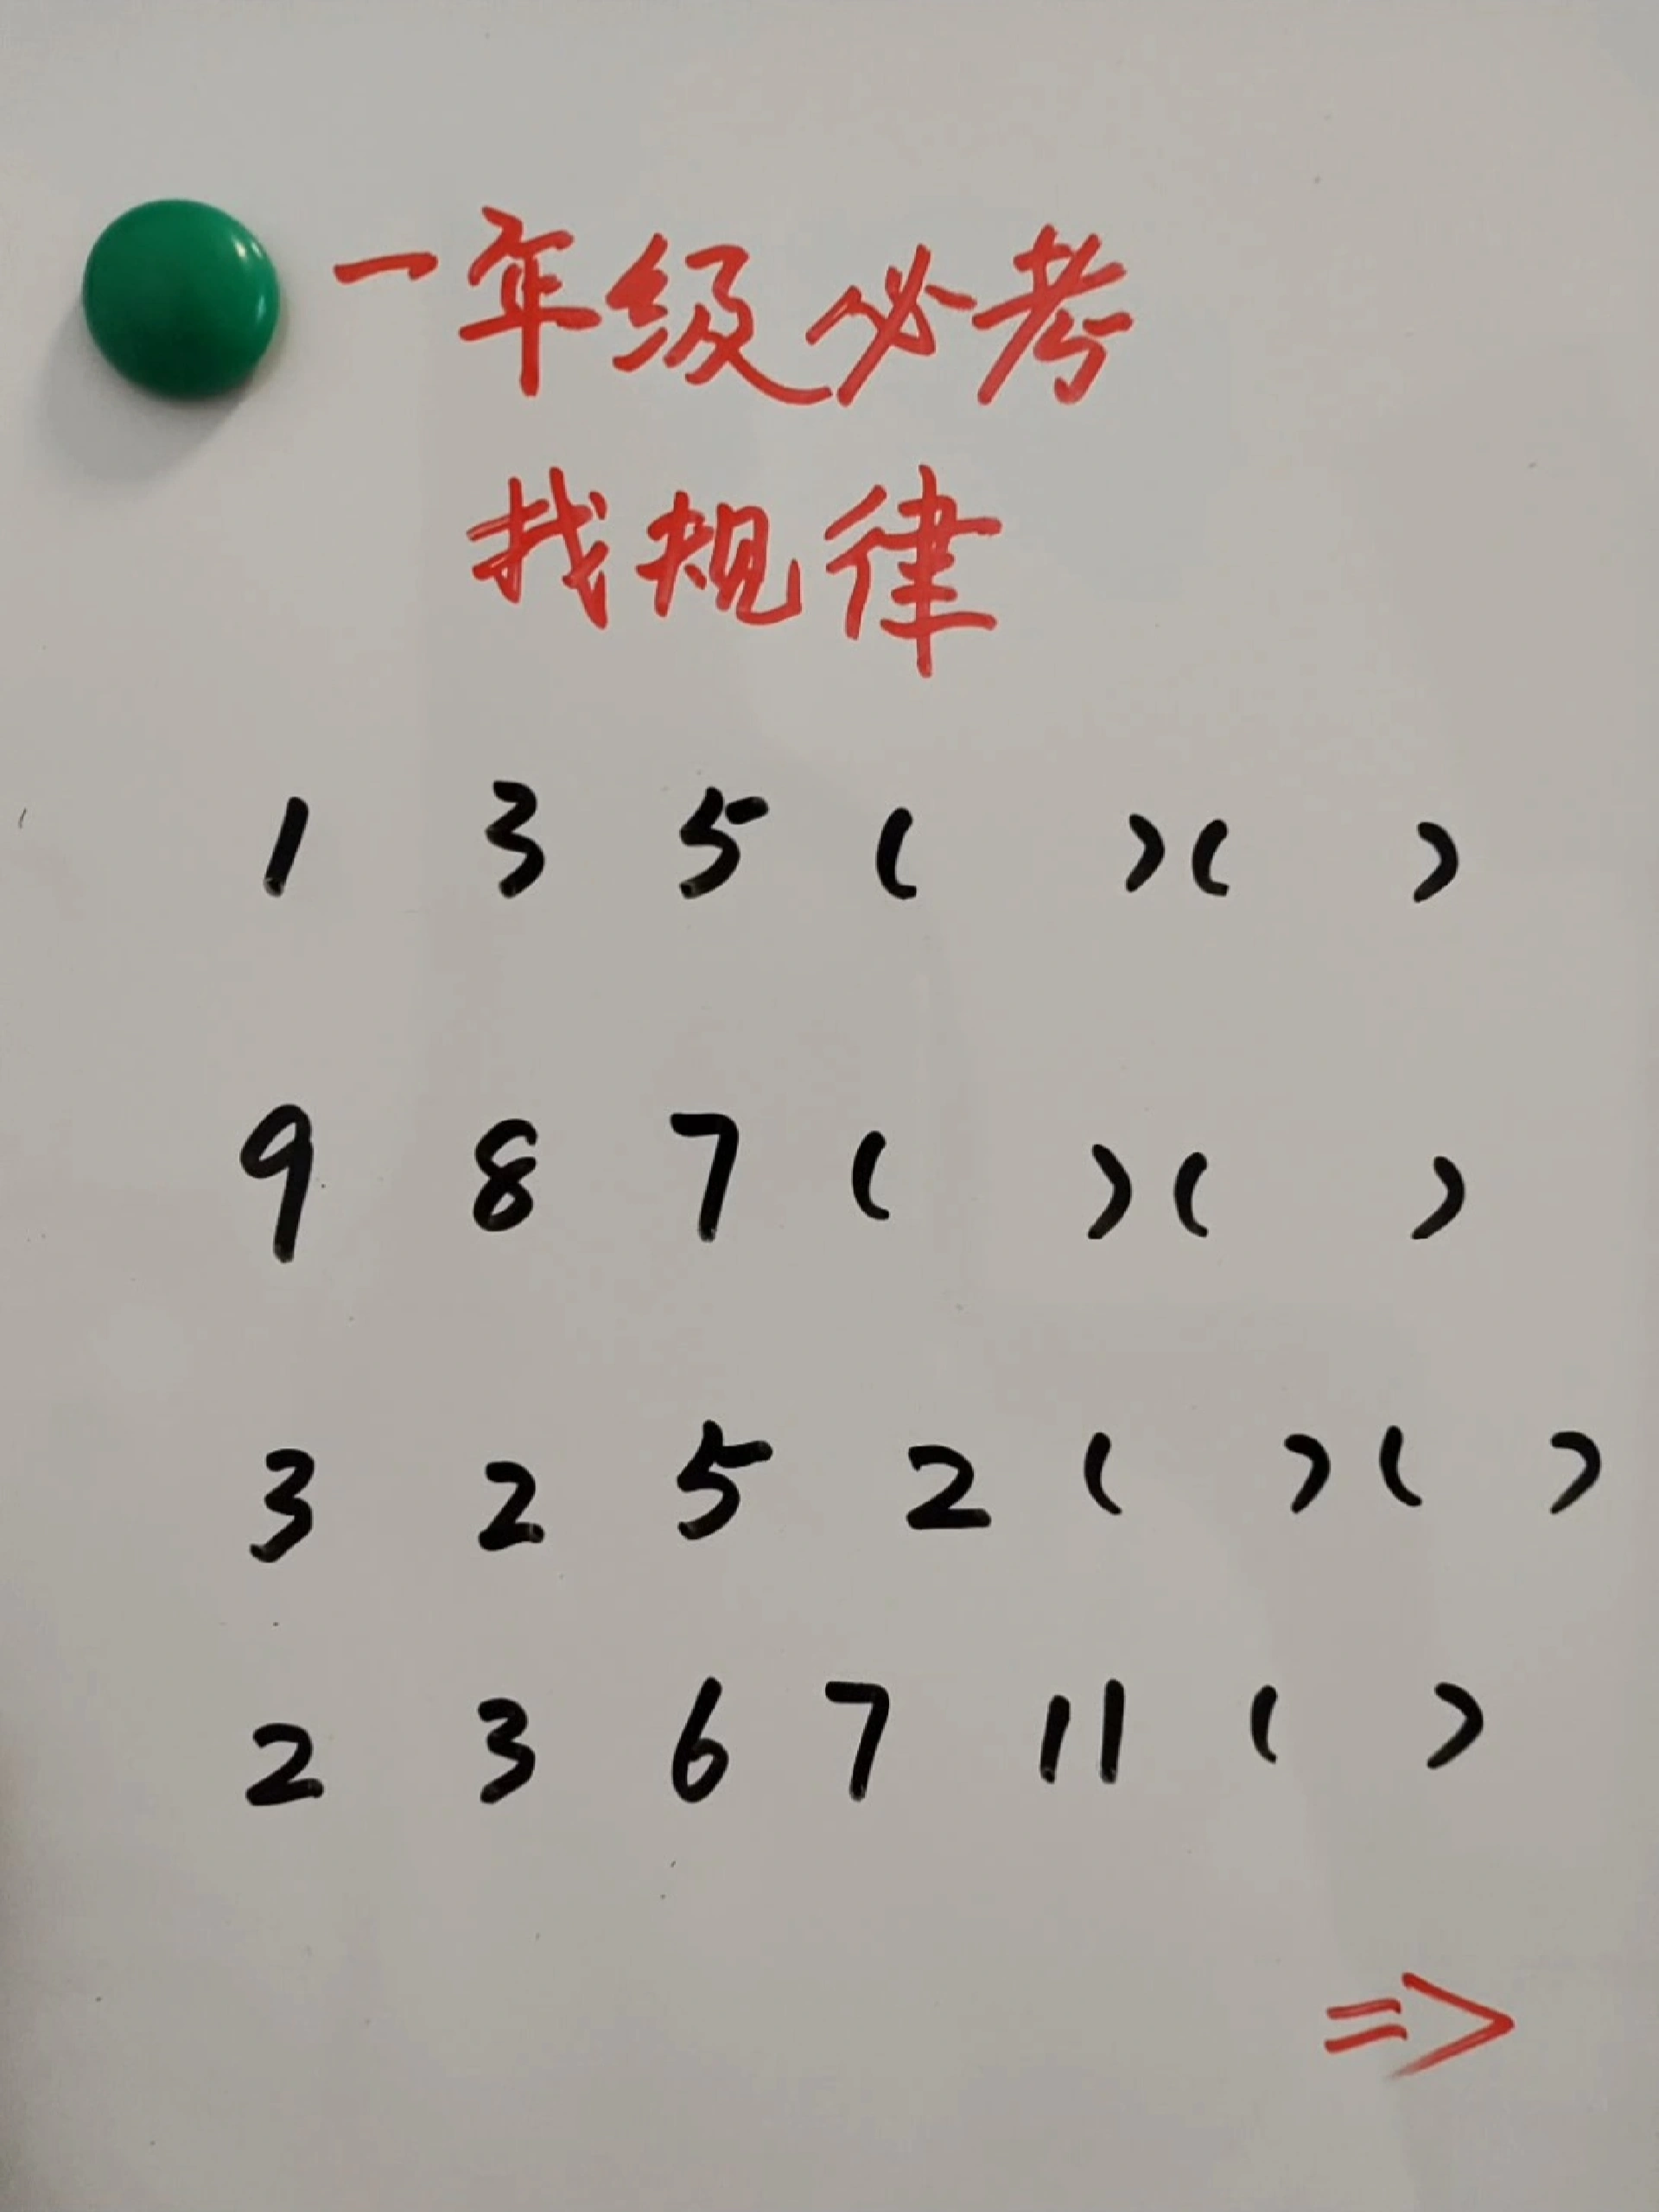 一年级必考
找规律
1 3 5 ( ) ( )
9 8 7 ( ) ( )
3 2 5 2 ( ) ( )
2 3 6 7 11 ( )
=>